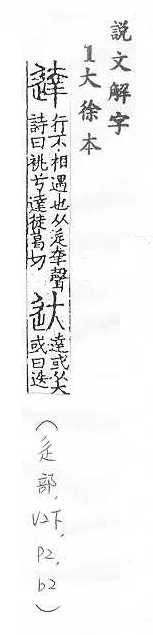 説文解字
1大徐本
達
行不相遇也从辵羍聲
詩曰挑兮達徒葛切
达
達或从大
或曰迭
(辵部,V2下,P2,b2)